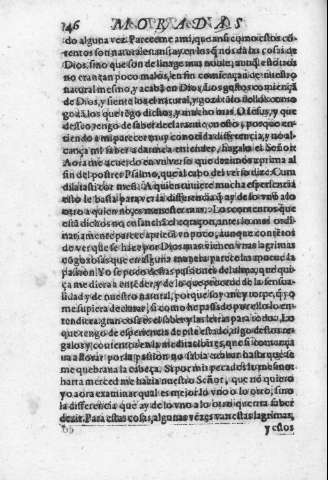 146 MORADAS
do alguna vez. Pareceme ami, que ansi como estos cõ
tentos son naturales, ansi ay en los q̃ nos dà las cosas de
Dios, sino que son de linage muy noble, aunq̃ estotros
no eran tan poco malos, en fin comiençan de nuestro
natural mesmo, y acabã en Dios. Los gustos comiençã
de Dios, y siente los el natural, y goza tãto dellos como
goza los que tẽgo dichos, y mucho mas. O Iesus, y que
desseo tengo de saber declararme en esto, porque en
tiendo a mi parecer muy conocida differencia, y no al
cança mi saber a darme a entender, hagalo el Señor.
Aora me acuerdo en vn verso que dezimos a prima al
fin del postrer Psalmo, que al cabo del verso dize: Cum
dilatasti cor meũ. A quien tuuiere mucha esperiencia
esto le basta para ver la differencia q̃ ay de lo vno a lo
otro, a quien no, es menester mas. Los contentos que
està dichos no ensanchã el coraçon, antes lo mas ordi
nariamente parece aprieta vn poco, aunque con cõtẽto
de ver que se haze por Dios, mas vienen vnas lagrimas
cõgoxosas, que en alguna manera parece las mueue la
passion. Yo se poco destas passiones del alma, que qui
ça me diera a entẽder, y de lo que procede de la sensua
lidad y de nuestro natural, porque soy muy torpe, q̃ yo
me supiera declarar, si como he passado por ello lo en
tendiera: gran cosa es el saber y las letras para todo. Lo
que tengo de esperiencia de este estado, digo destos re
galos y contentos en la meditacion es, que si comença
ua a llorar por la passion no sabia acabar hasta que se
me quebraua la cabeça. Si por mis pecados lo mesmo:
harta merced me hazia nuestro Señor, que no quiero
yo aora examinar qual es mejor lo vno o lo otro, sino
la differencia que ay de lo vno a lo otro querria saber
dezir. Para estas cosas, algunas vezes van estas lagrimas,
y estos